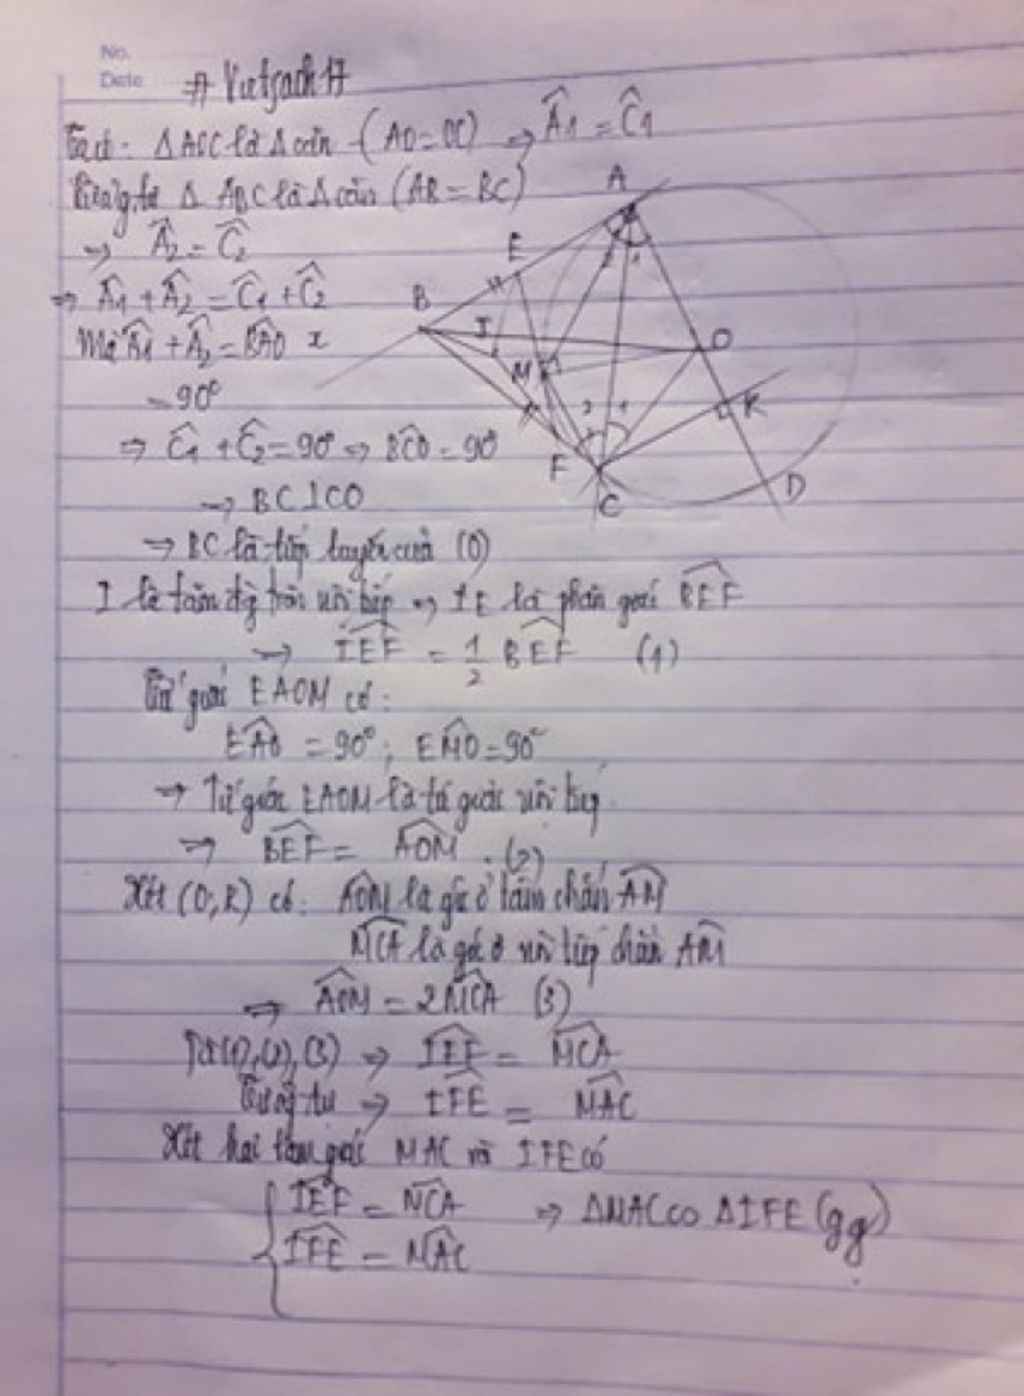 No.
Date
# Vietjack 17
Ta có: ΔAOC là Δ cân (AO=OC) ⇒ Â1 = Ĉ1
Tương tự Δ ABC là Δ cân (AB = BC)
⇒ Â2 = Ĉ2
⇒ Â1 + Â2 = Ĉ1 + Ĉ2
Mà Â1 + Â2 = BAO
= 90°
⇒ Ĉ1 + Ĉ2 = 90° ⇒ BCO = 90°
⇒ BC⊥CO
⇒ BC là tiếp tuyến của (O)
A
E
B
I
2 1
O
x
M
2 1
K
F
C
D
I là tâm đg tròn nội tiếp ⇒ IE là phân giác BEF
⇒ IEF = 1/2 BEF (1)
Tứ giác EAOM có:
EAO = 90°; EMO = 90°
⇒ Tứ giác EAOM là tứ giác nội tiếp
⇒ BEF = AOM . (2)
Xét (O,R) có: AOM là góc ở tâm chắn AM
MCA là góc nội tiếp chắn AM
⇒ AOM = 2MCA (3)
Từ (1), (2), (3) ⇒ IEF = MCA
Tương tự ⇒ IFE = MAC
Xét hai tam giác MAC và IFE có
{ IEF = MCA ⇒ ΔMAC ∽ ΔIFE (gg)
IFE = MAC